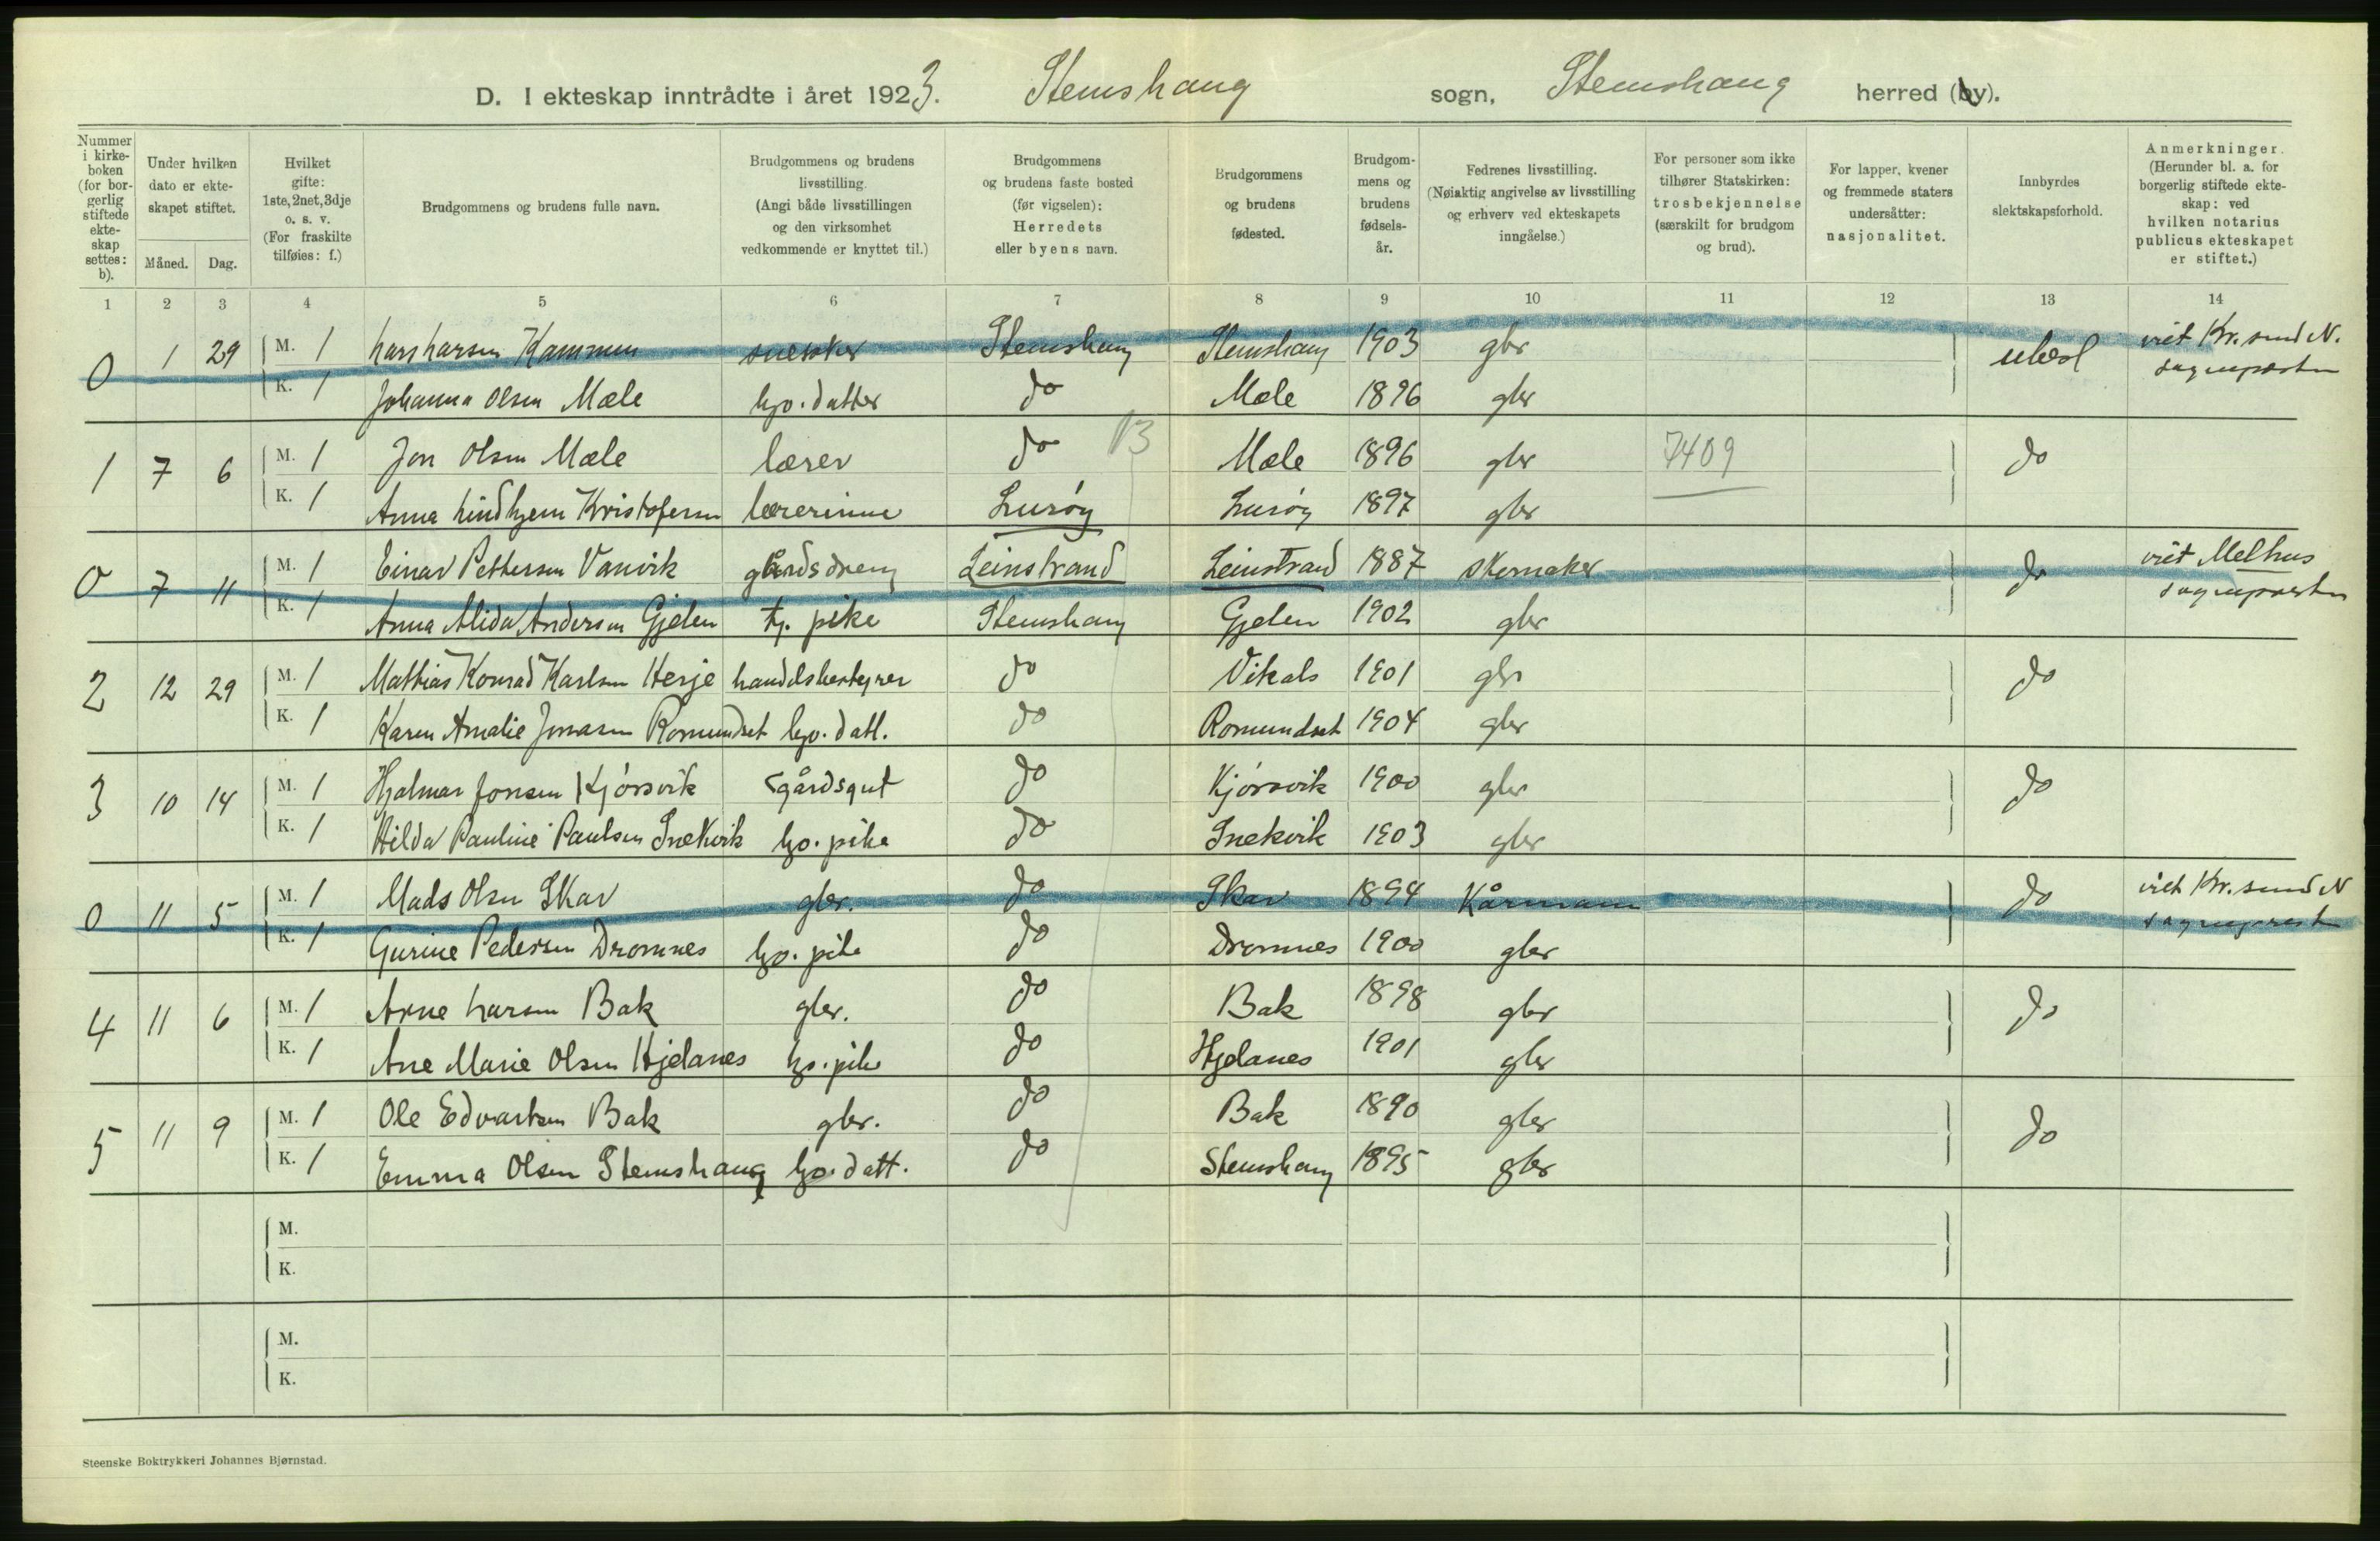 D. I ekteskap inntrådte i året 1923. Stemshaug sogn, Stemshaug herred (by).
Nummer i kirkeboken (for borgerlig stiftede ekteskap settes: b).
Under hvilken dato er ekteskapet stiftet.
Måned. Dag.
Hvilket gifte: 1ste, 2net, 3dje o. s. v. (For fraskilte tilføies: f.)
Brudgommens og brudens fulle navn.
Brudgommens og brudens livsstilling. (Angi både livsstillingen og den virksomhet vedkommende er knyttet til.)
Brudgommens og brudens faste bosted (før vigselen): Herredets eller byens navn.
Brudgommens og brudens fødested.
Brudgommens og brudens fødselsår.
Fedrenes livsstilling. (Nøiaktig angivelse av livsstilling og erhverv ved ekteskapets inngåelse.)
For personer som ikke tilhører Statskirken: trosbekjennelse (særskilt for brudgom og brud).
For lapper, kvener og fremmede staters undersåtter: nasjonalitet.
Innbyrdes slektskapsforhold.
Anmerkninger. (Herunder bl. a. for borgerlig stiftede ekteskap: ved hvilken notarius publicus ekteskapet er stiftet.)
1 2 3 4 5 6 7 8 9 10 11 12 13 14
0 1 29 M. 1 Lars Larsen snekker Stemshaug Stemshaug 1903 gbr ubesl viet Kr.sund N.
K. 1 Johanna Olsen Mæle hjv. datter do Mæle 1896 gbr sognepresten
1 7 6 M. 1 Jon Olsen Mæle lærer do 13 Mæle 1896 gbr 7409 do
K. 1 Anna Lindhjem Kristofersen lærerinne Lurøy Lurøy 1897 gbr
0 7 11 M. 1 Einar Pettersen Vanvik gårdsdreng Leinstrand Leinstrand 1887 skomaker do viet Melhus
K. 1 Anna Alida Andersen Gjelen tj. pike Stemshaug Gjelen 1902 gbr sognepresten
2 12 29 M. 1 Mathias Konrad Karlsen Herje handelsbestyrer do Vikals 1901 gbr do
K. 1 Karen Amalie Jonasen Romundset hjv. datt. do Romundset 1904 gbr
3 10 14 M. 1 Hjalmar Jonsen Kjørsvik gårdsgut do Kjørsvik 1900 gbr do
K. 1 Hilda Pauline Paulsen Snekvik hjv. pike do Snekvik 1903 gbr
0 11 5 M. 1 Mads Olsen Skar gbr. do Skar 1894 Kårmann do viet Kr.sund N
K. 1 Gurine Pedersen Dromnes hjv. pike do Dromnes 1900 gbr sogneprest
4 11 6 M. 1 Arne Larsen Bak gbr. do Bak 1898 gbr do
K. 1 Ane Marie Olsen Hjelanes hjv. pike do Hjelanes 1901 gbr
5 11 9 M. 1 Ole Edvartsen Bak gbr. do Bak 1890 gbr do
K. 1 Emma Olsen Stemshaug hjv. datt. do Stemshaug 1895 gbr
M.
K.
M.
K.
Steenske Boktrykkeri Johannes Bjørnstad.